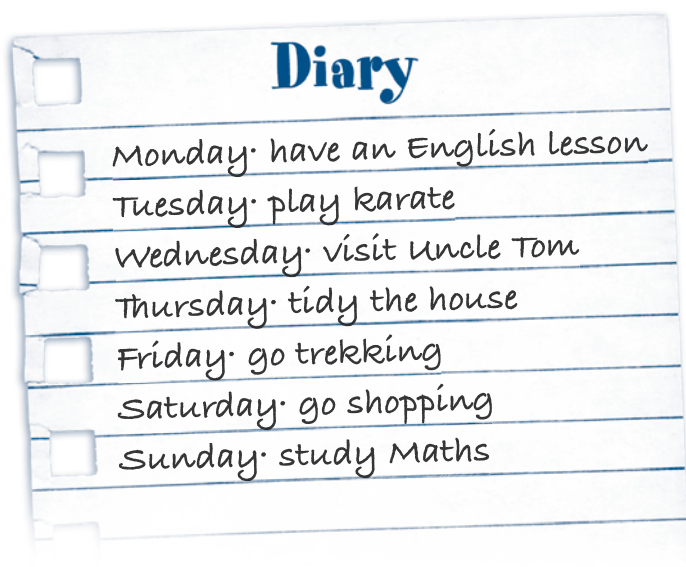 Diary
Monday· have an English lesson
Tuesday· play karate
Wednesday· visit Uncle Tom
Thursday· tidy the house
Friday· go trekking
Saturday· go shopping
Sunday· study Maths